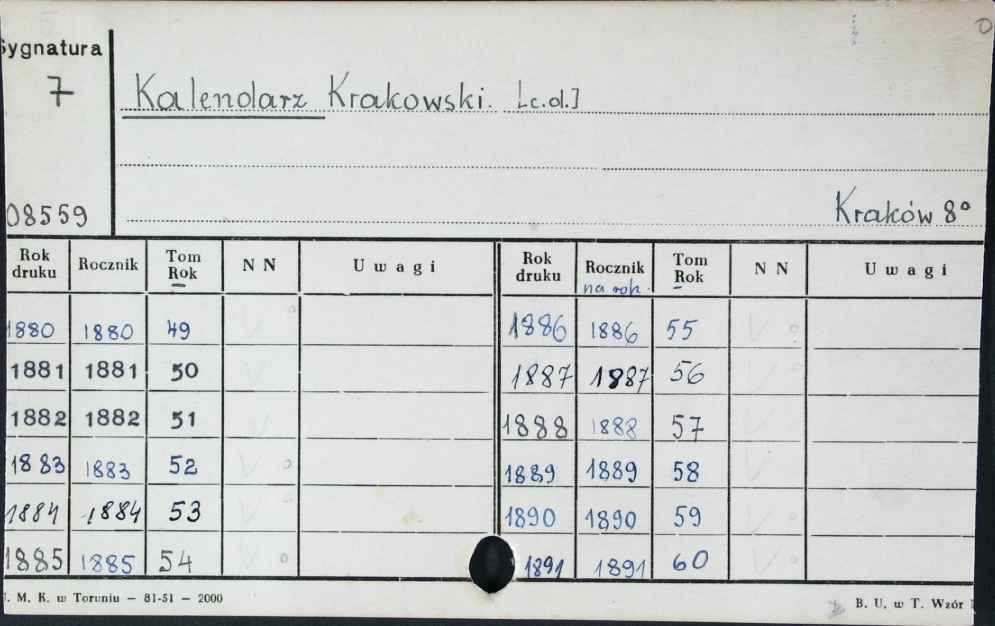 Sygnatura
7
Kalendarz Krakowski. [c.d.]
08559
Kraków 8º
Rok druku Rocznik Tom Rok N N Uwagi Rok druku Rocznik na rok. Tom Rok N N Uwagi
1880 1880 49 1886 1886 55
1881 1881 50 1887 1887 56
1882 1882 51 1888 1888 57
1883 1883 52 1889 1889 58
1884 1884 53 1890 1890 59
1885 1885 54 1891 1891 60
. M. K. w Toruniu — 81-51 — 2000
B. U. w T. Wzór